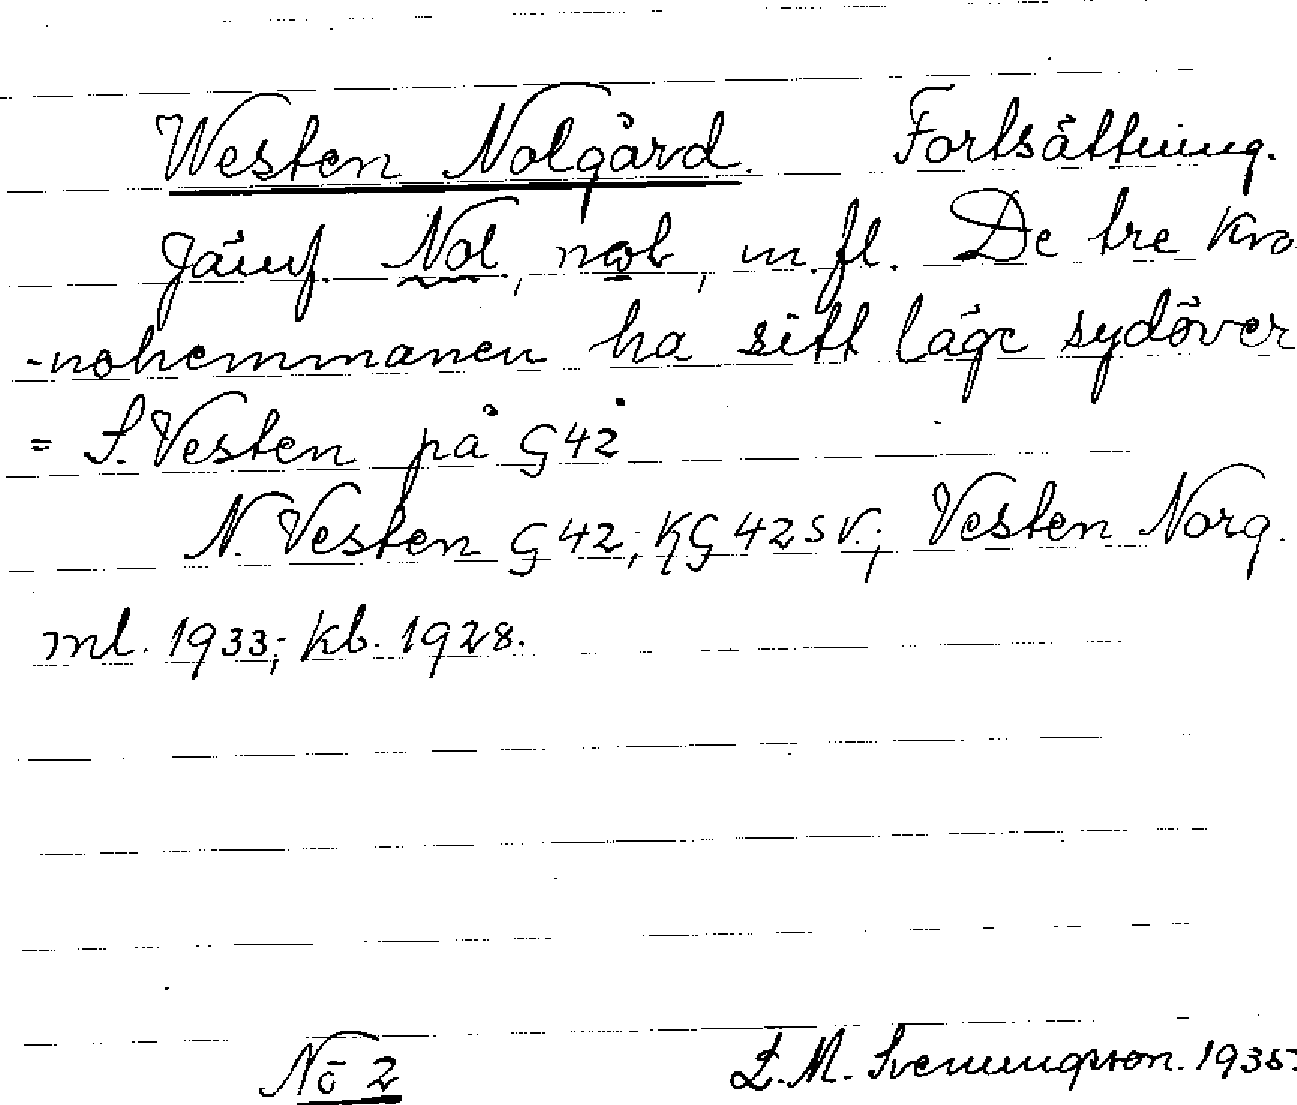 Westen Nolgård. Fortsättning.
Jämf. Nol, nol, m.fl. De tre kro
-nohemmanen ha sitt läge sydöver
= S. Vesten på G 42
N. Vesten G 42; KG 42 SV.; Vesten Norg.
ml. 1933; kb. 1928.
No 2 E.M. Svenungsson. 1935.